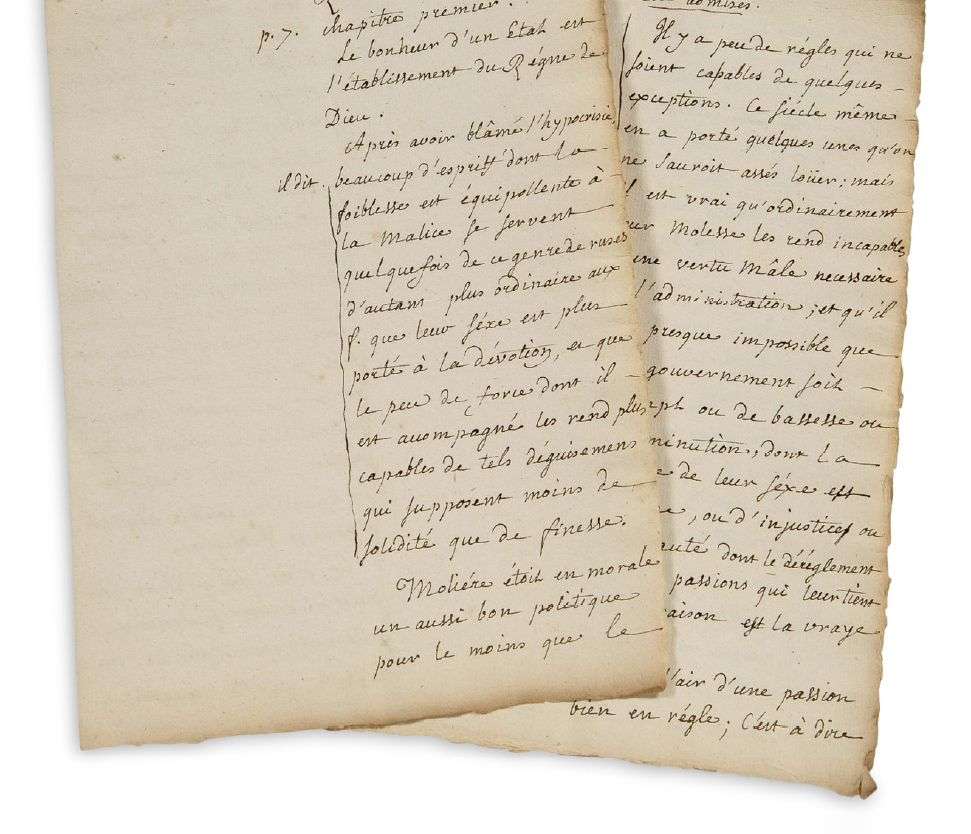 p. 7. chapitre premier.
Le bonheur d'un Etat est
l'établissement du Régne de
Dieu.
Après avoir blâmé l'hypocrisie,
il dit. beaucoup d'esprits dont la
foiblesse est équipollente à
la Malice se servent
quelquefois de ce genre de ruses
d'autant plus ordinaire aux
f. que leur séxe est plus
porté à la dévotion, et que
le peu de force dont il
est acompagné les rend plus
capables de tels déguisemens
qui supposent moins de
solidité que de finesse.
Moliére étoit en morale
un aussi bon politique
pour le moins que le
admises.
Il y a peu de régles qui ne
soient capables de quelques
exceptions. Ce siécle même
en a porté quelques unes qu'on
ne sauroit assés loüer; mais
est vrai qu'ordinairement
Molesse les rend incapables
vertu Mâle necessaire
l'administration; et qu'il
presque impossible que
gouvernement soit
ou de bassesse ou
minution, dont la
de leur séxe est
, ou d'injustices ou
auté dont le déréglement
passions qui leur tient
aison est la vraye
l'air d'une passion
bien en régle; C'est à dire